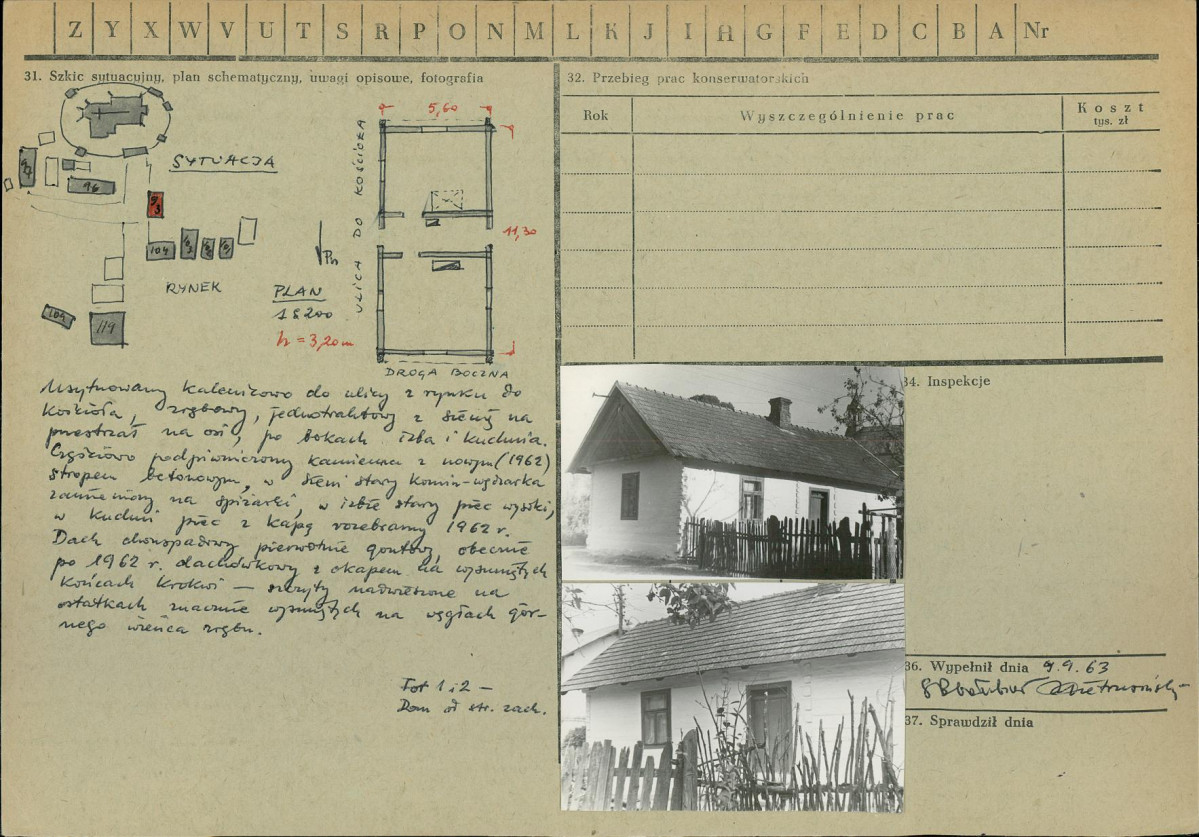 Z Y X W V U T S R P O N M L K J I H G F E D C B A Nr
31. Szkic sytuacyjny, plan schematyczny, uwagi opisowe, fotografia
SYTUACJA
96
93
104
119
RYNEK
Pn
PLAN
1:200
h = 3,20m
5,60
11,30
ULICA DO KOŚCIOŁA
DROGA BOCZNA
Usytuowany kalenicowo do ulicy z rynku do
Kościoła, zrębowy, jednotraktowy z sienią na
przestrzał na osi, po bokach izba i kuchnia.
Częściowo podpiwniczony kamienna z nowym (1962)
stropem betonowym, w sieni stary komin-wędzarka
zamieniony na spiżarki, w izbie stary piec wysoki,
w kuchni piec z kapą rozebrany 1962 r.
Dach dwuspadowy pierwotnie gontowy, obecnie
po 1962 r. dachówkowy z okapem na wysuniętych
końcach krokwi — szczyty nadwieszone na
ostatkach znacznie wysuniętych na węgłach gór-
nego wieńca zrębu.
Fot 1 i 2 —
Dom od str. zach.
32. Przebieg prac konserwatorskich
Rok
Wyszczególnienie prac
Koszt
tys. zł
34. Inspekcje
36. Wypełnił dnia 9.9.63
37. Sprawdził dnia